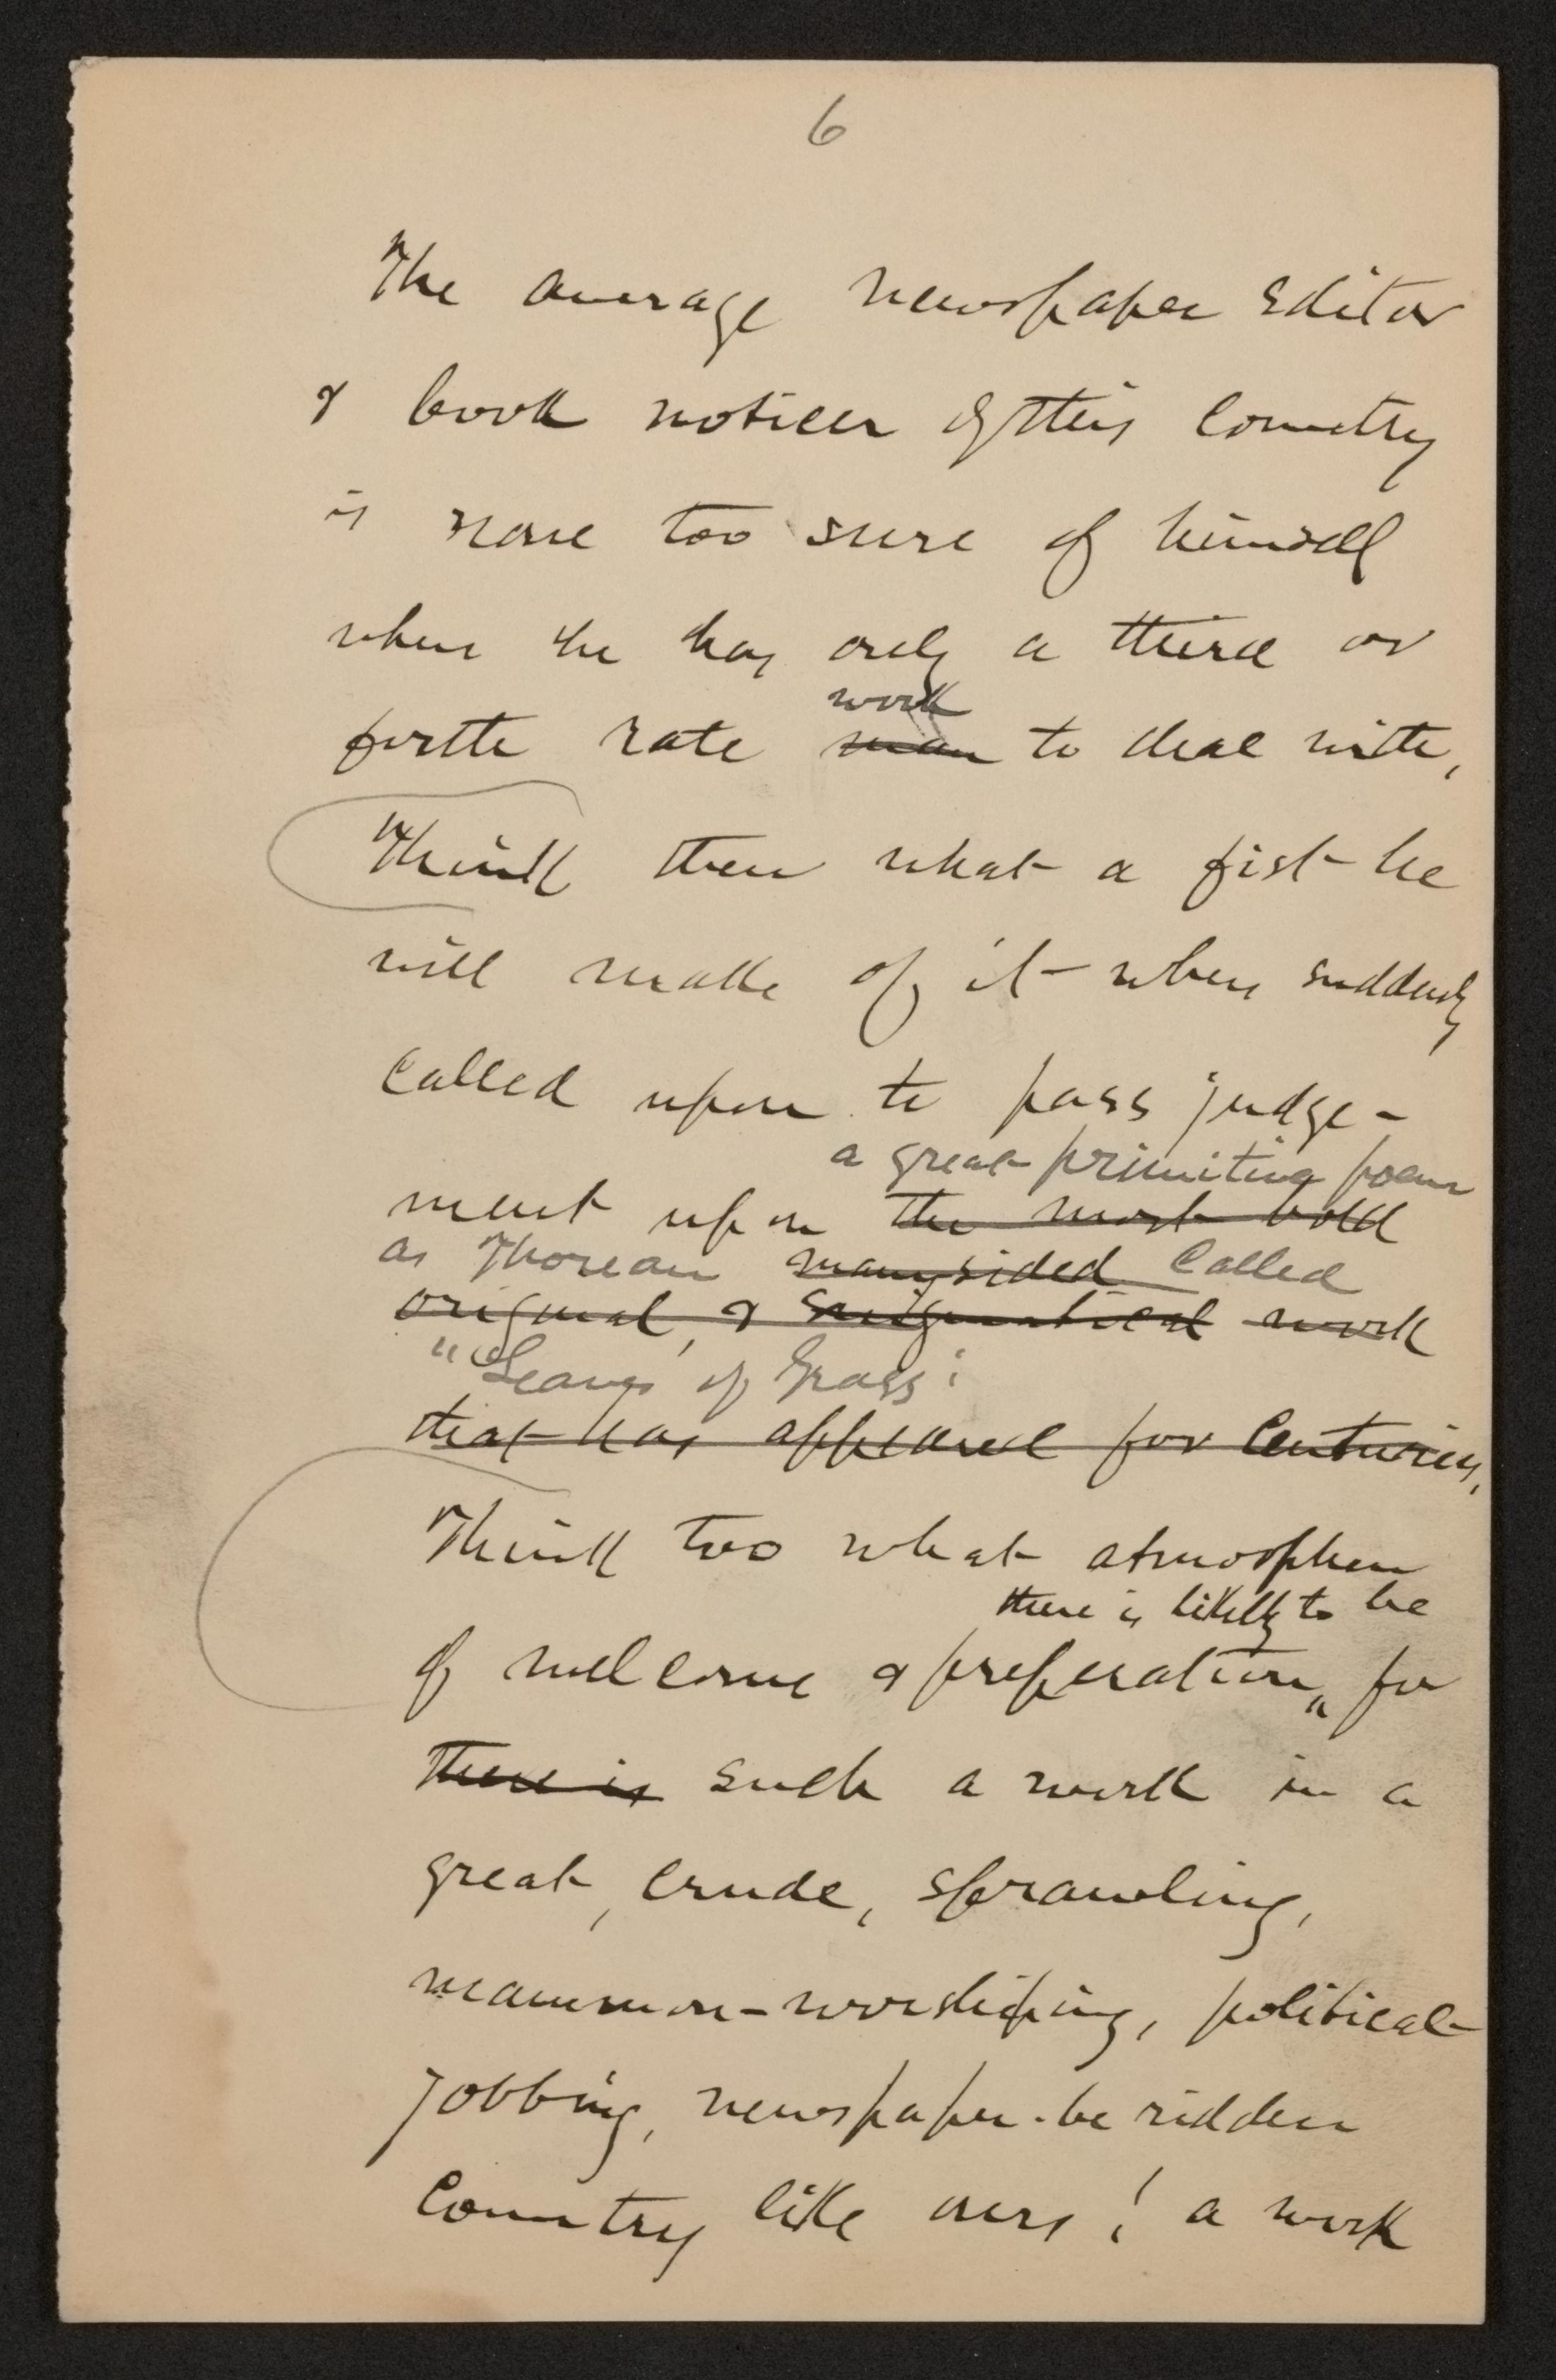 6
The average newspaper Editor
& book noticer of this Country
is none too sure of himself
when he has only a third or
work
forth rate man to deal with,
Think then what a fist he
will make of it when suddenly
Called upon to pass judge-
a great primitive poem
ment upon the most bold
as Thoreau manysided Called
original, & enigmatical work
"Leaves of Grass".
that has appeared for Centuries.
Think too what atmosphere
there is likely to be
of welcome & preperation " for
there is such a work in a
great, crude, sprawling,
mammon-worshiping, political-
jobbing, newspaper-be ridden
Country like ours! a work